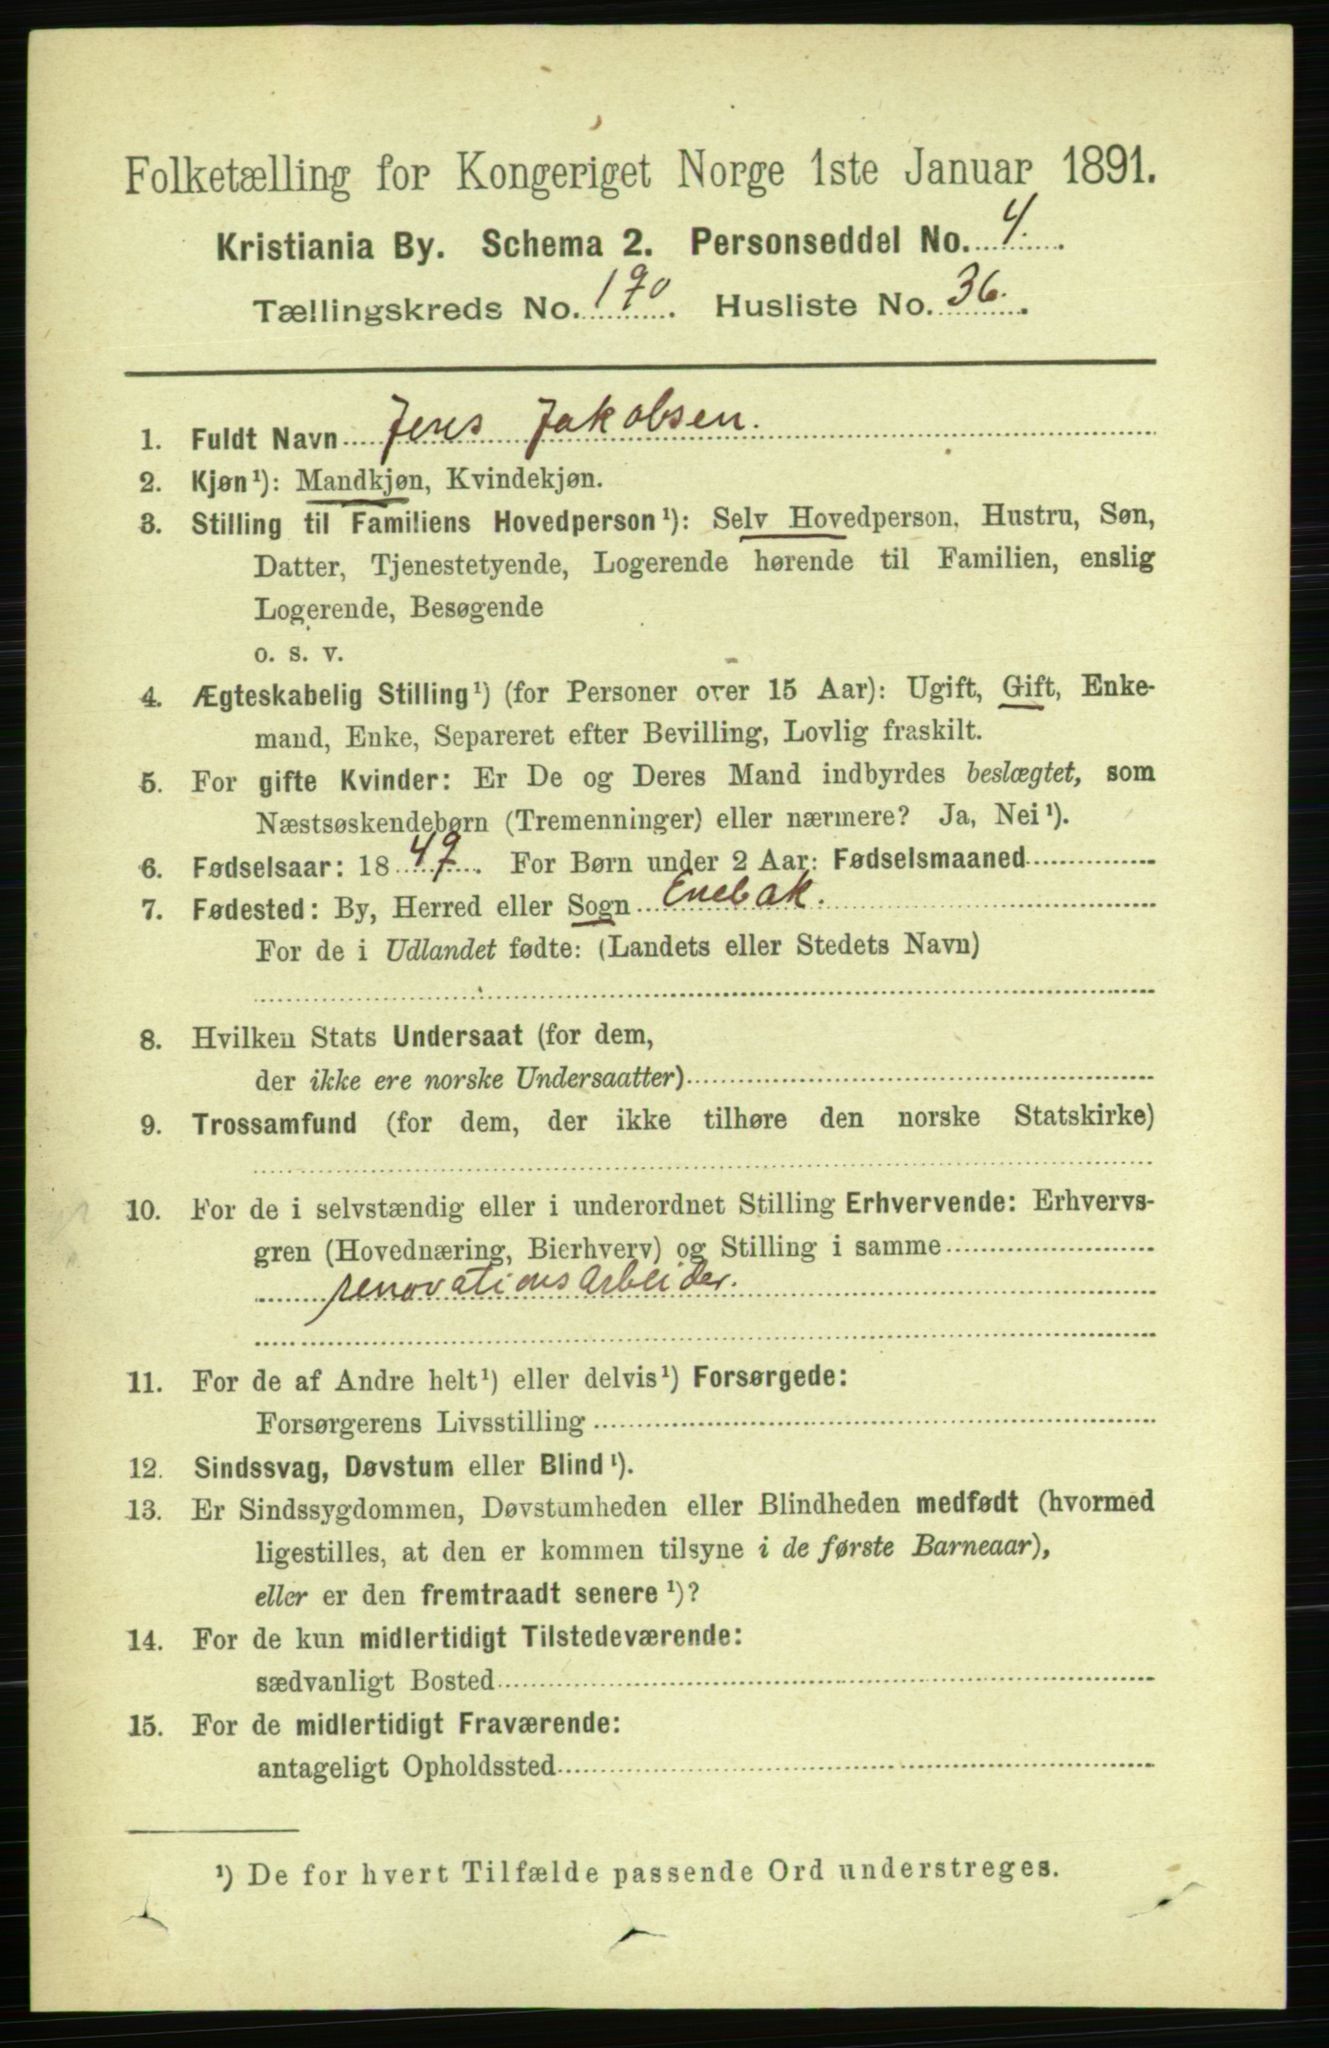 Folketælling for Kongeriget Norge 1ste Januar 1891.
Kristiania By. Schema 2. Personseddel No. 4.
Tællingskreds No. 190. Husliste No. 36.
1. Fuldt Navn Jens Jakobsen.
2. Kjøn¹): Mandkjøn, Kvindekjøn.
3. Stilling til Familiens Hovedperson¹): Selv Hovedperson, Hustru, Søn,
Datter, Tjenestetyende, Logerende hørende til Familien, enslig
Logerende, Besøgende
o. s. v.
4. Ægteskabelig Stilling¹) (for Personer over 15 Aar): Ugift, Gift, Enke-
mand, Enke, Separeret efter Bevilling, Lovlig fraskilt.
5. For gifte Kvinder: Er De og Deres Mand indbyrdes beslægtet, som
Næstsøskendebørn (Tremenninger) eller nærmere? Ja, Nei¹).
6. Fødselsaar: 1849. For Børn under 2 Aar: Fødselsmaaned
7. Fødested: By, Herred eller Sogn Enebak.
For de i Udlandet fødte: (Landets eller Stedets Navn)
8. Hvilken Stats Undersaat (for dem,
der ikke ere norske Undersaatter)
9. Trossamfund (for dem, der ikke tilhøre den norske Statskirke)
10. For de i selvstændig eller i underordnet Stilling Erhvervende: Erhvervs-
gren (Hovednæring, Bierhverv) og Stilling i samme
renovationsarbeider.
11. For de af Andre helt¹) eller delvis¹) Forsørgede:
Forsørgerens Livsstilling
12. Sindssvag, Døvstum eller Blind¹).
13. Er Sindssygdommen, Døvstumheden eller Blindheden medfødt (hvormed
ligestilles, at den er kommen tilsyne i de første Barneaar),
eller er den fremtraadt senere¹)?
14. For de kun midlertidigt Tilstedeværende:
sædvanligt Bosted
15. For de midlertidigt Fraværende:
antageligt Opholdssted
¹) De for hvert Tilfælde passende Ord understreges.